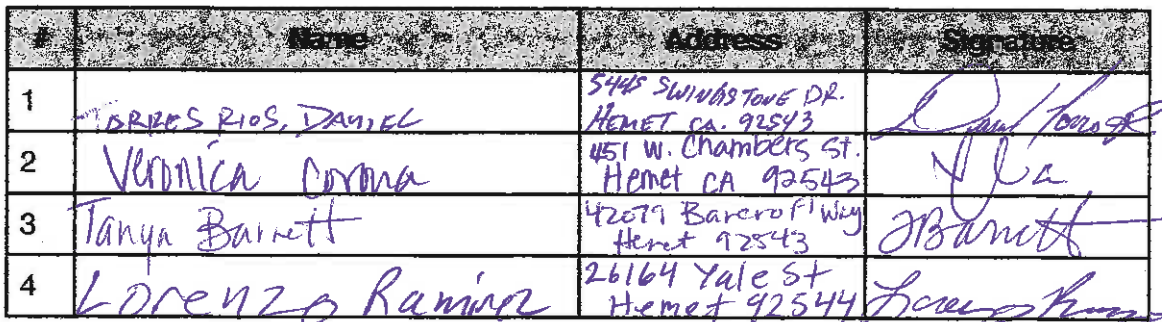 # Name Address Signature
1 TORRES RIOS, DANIEL 5445 SWINGSTONE DR.
HEMET CA. 92543
2 Veronica Corona 451 W. Chambers St.
Hemet CA 92543
3 Tanya Barnett 42079 Way
Hemet 92543 TBarnett
4 Lorenzo Ramirez 26164 Yale St
Hemet 92544